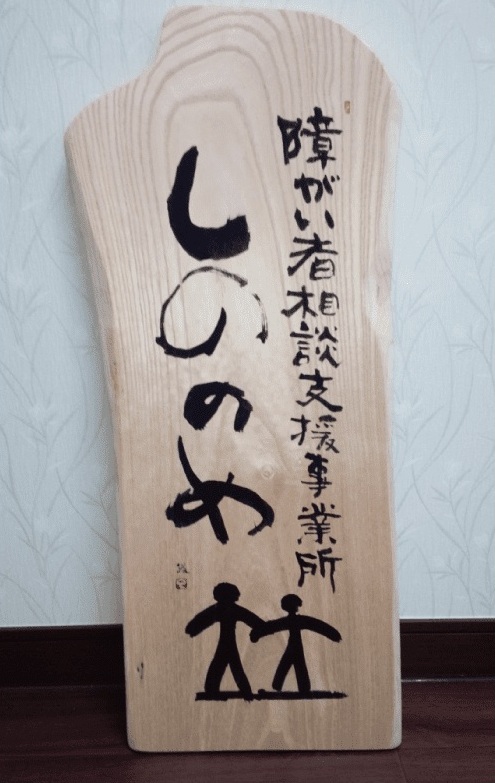 障がい者相談支援事業所
しののめ